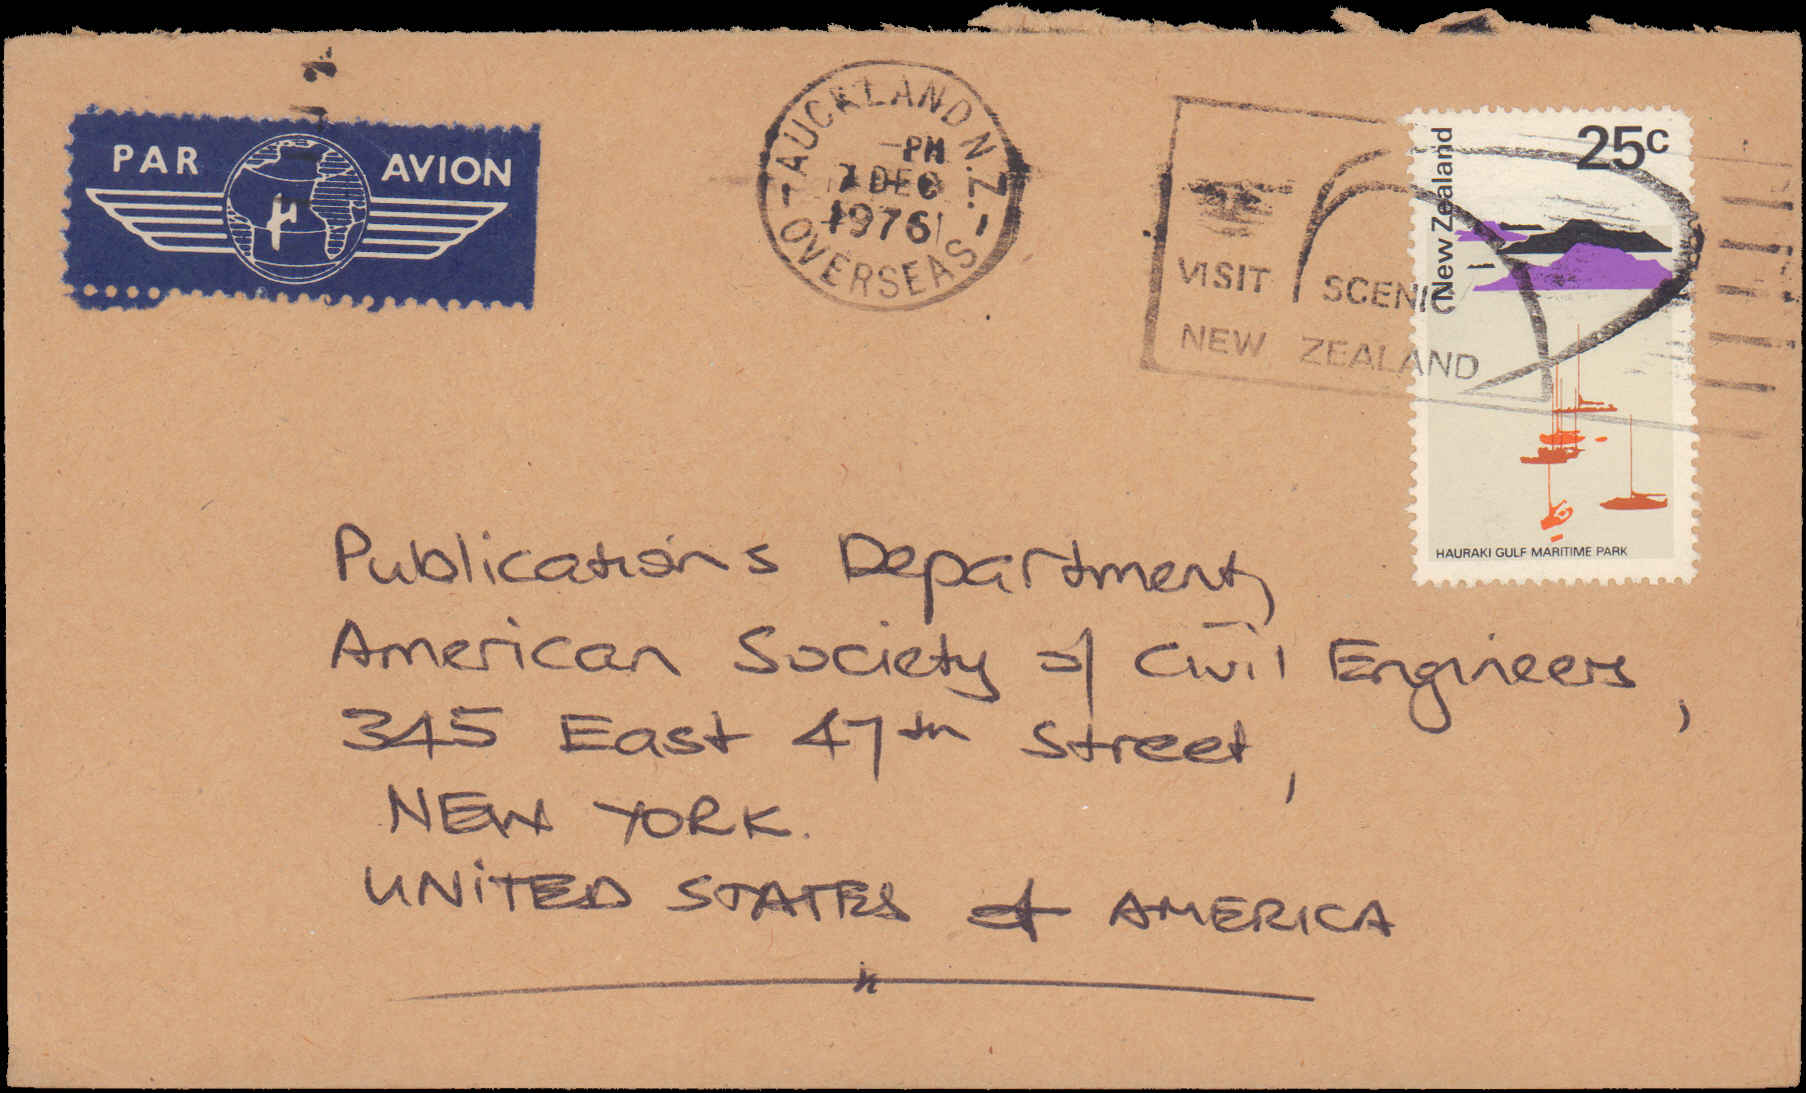 PAR AVION
AUCKLAND N.Z.
PM
7 DEC
1976
OVERSEAS
VISIT SCENIC
NEW ZEALAND
25c
New Zealand
HAURAKI GULF MARITIME PARK
Publications Department,
American Society of Civil Engineers,
345 East 47th Street,
NEW YORK.
UNITED STATES of AMERICA